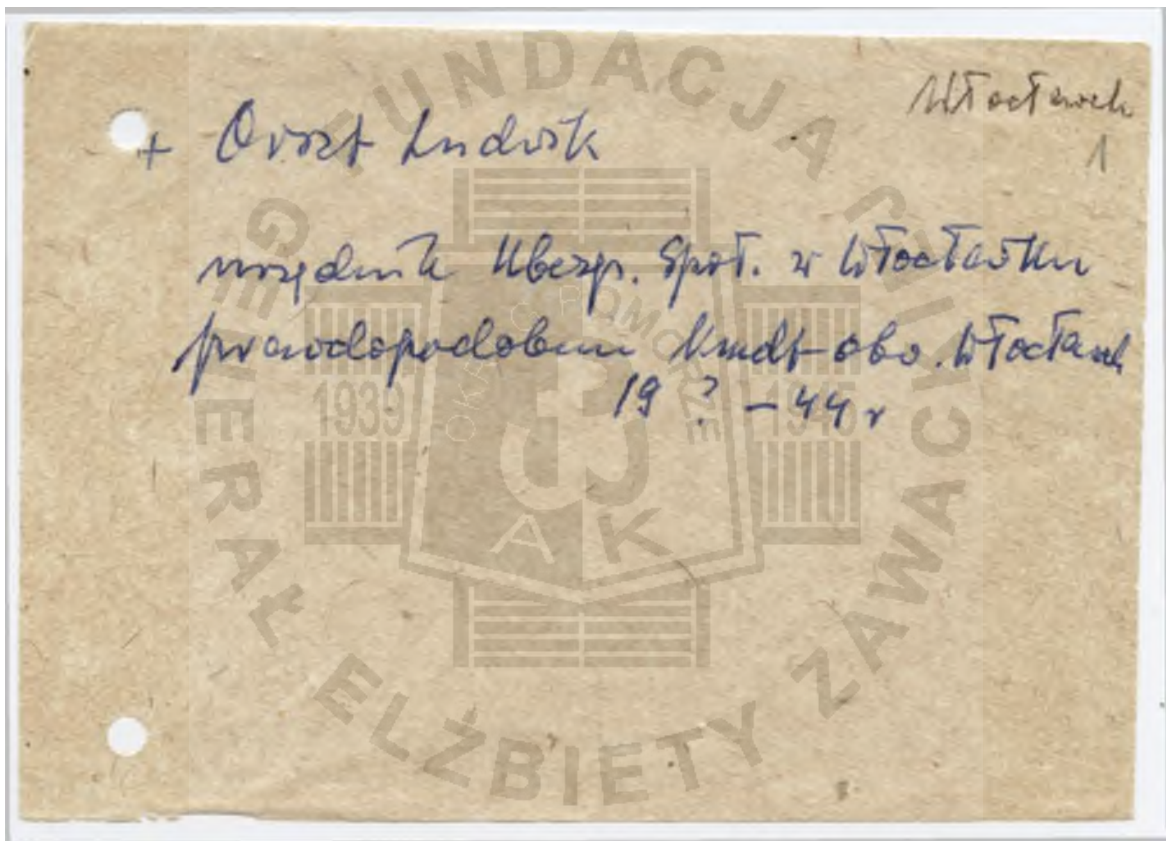 Włocławek
1
+ Orszt Ludwik
urzędnik Ubezp. Społ. w Włocławku
prawdopodobnie Kmdt obw. Włocławek
19 ? – 44 r
FUNDACJA
GENERAŁ ELŻBIETY ZAWACKIEJ
OKRĘG POMORZE
1939 1945
AK